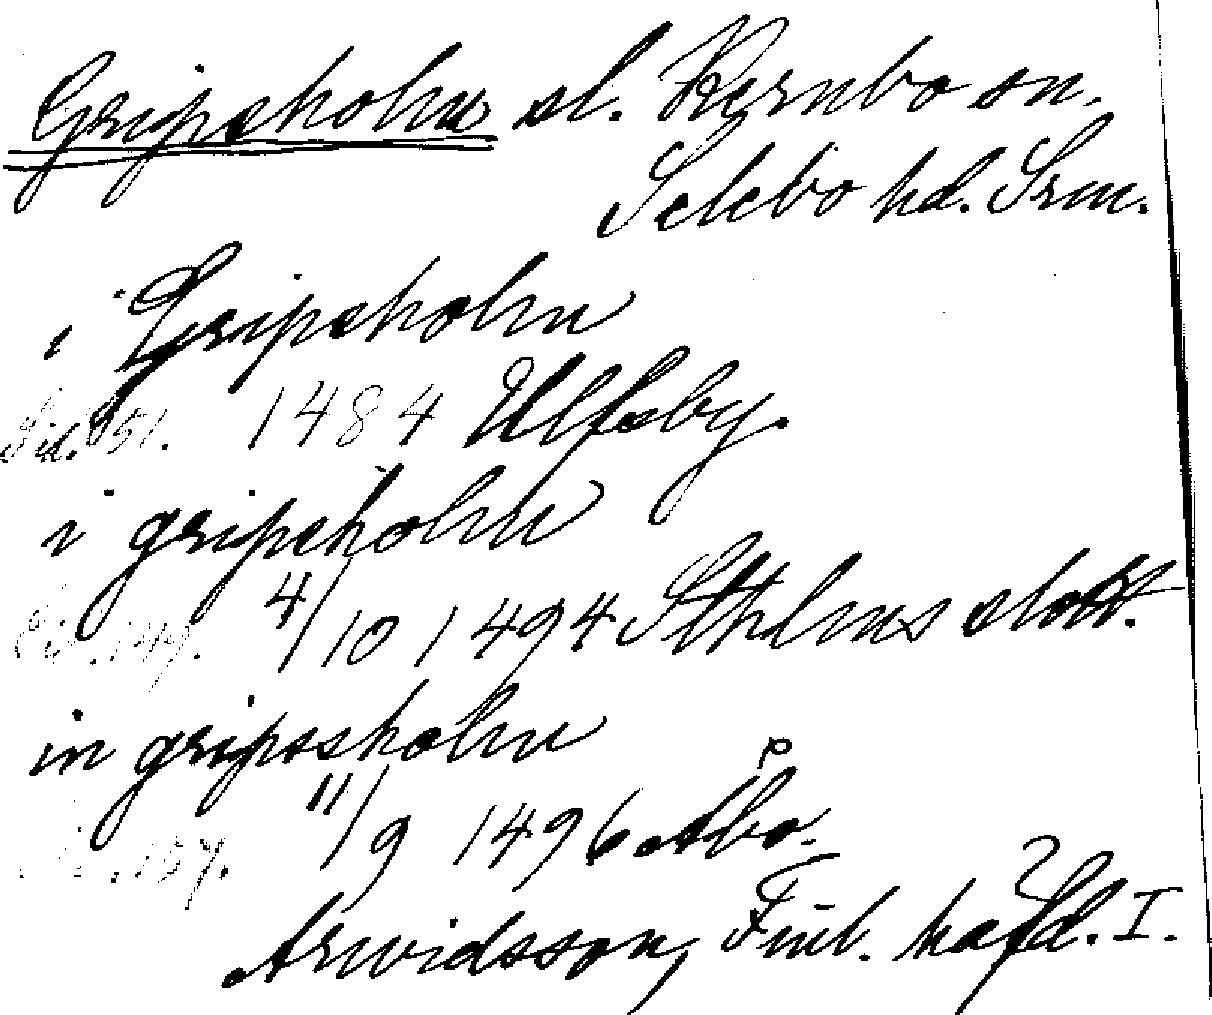 Gripsholm sl. Kernbo sn.
Selebo hd. Srm.
i Gripsholm
Sid. 51. 1484 Ulfsby.
i gripsholm
Sid. 147. 4/10 1494 Sthlms slott.
in gripssholm
157. 11/9 1496 Åbo.
Arwidsson, Finl. häfd. I.